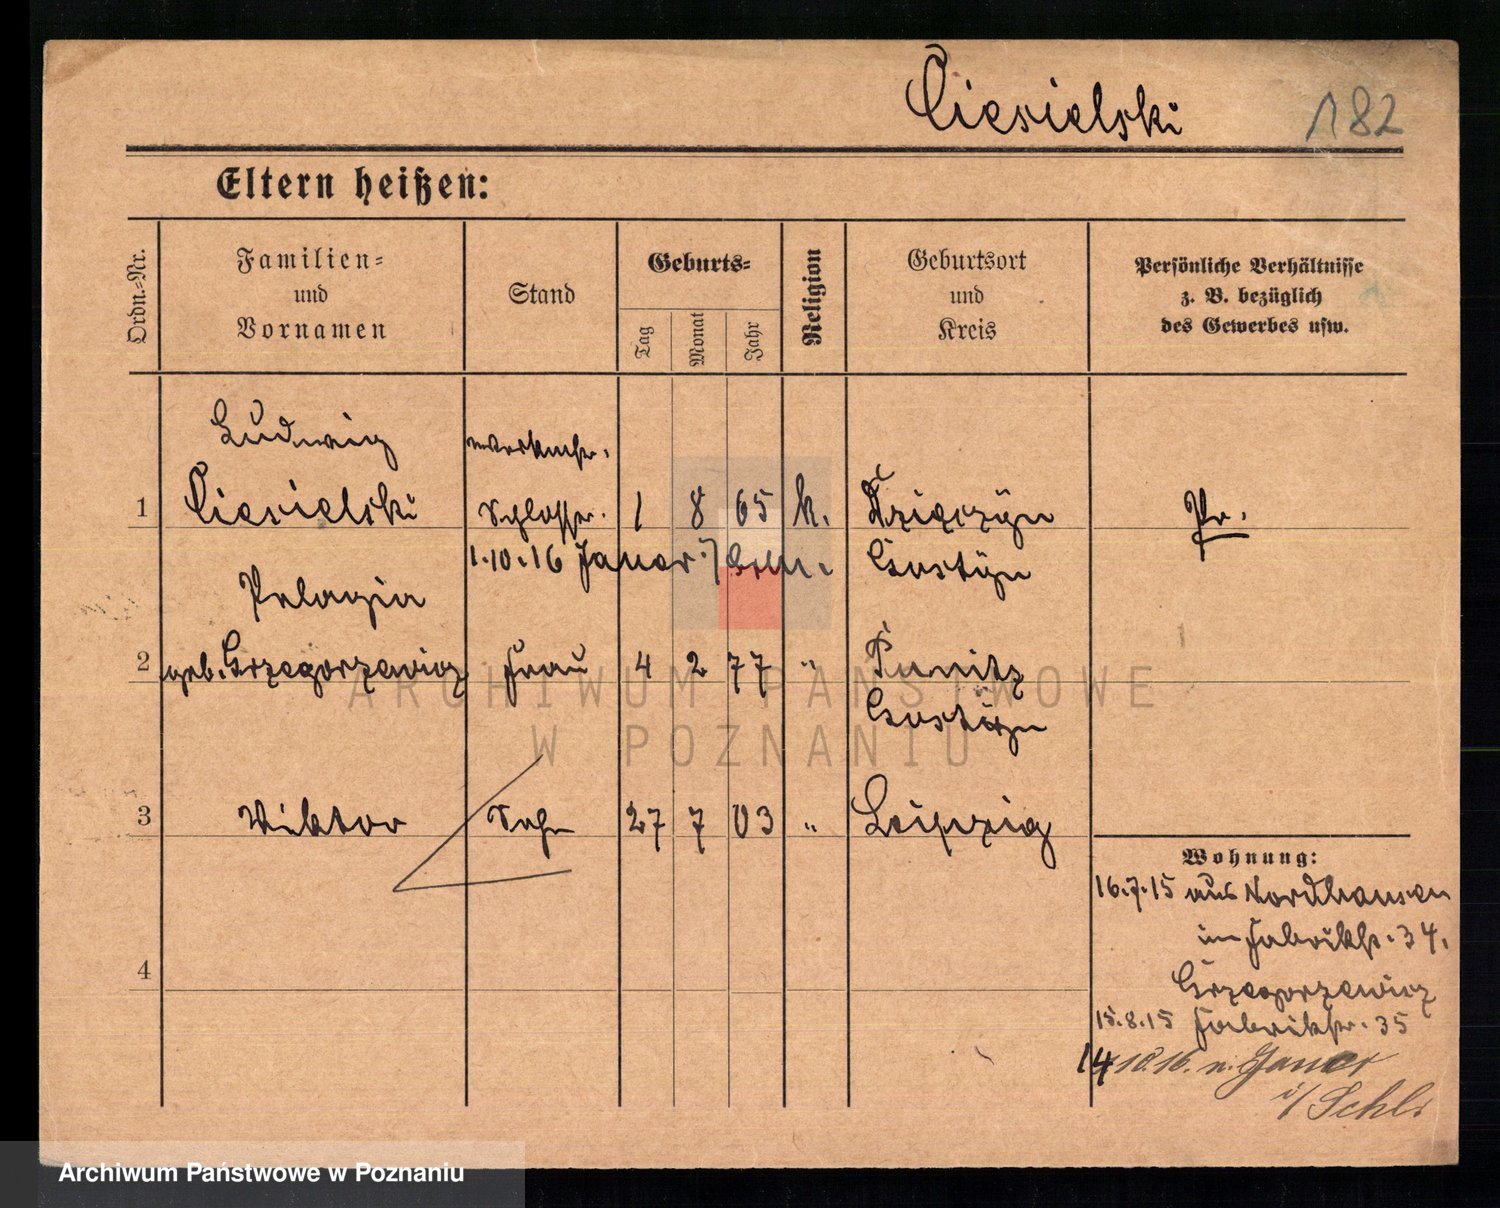 Ciesielski 182
Eltern heißen:
Ordn.-Nr.
Familien-
und
Vornamen
Stand
Geburts-
Tag
Monat
Jahr
Religion
Geburtsort
und
Kreis
Persönliche Verhältnisse
z. B. bezüglich
des Gewerbes usw.
Ludwig
1 Ciesielski Schlosser. 1 8 65 k. Pr.
1.10.16 Jauer
Gostyn
Pelagia
2 geb. Grzegorzewicz Frau 4 2 77 " Punitz
Gostyn
3 Viktor Sohn 27 7 03 " Leipzig
4
Wohnung:
16.7.15 aus Nordhausen
in Fabrikstr. 34.
Grzegorzewicz
15.8.15 Fabrikstr. 35
14 10 16. n. Jauer
i/ Schls
ARCHIWUM PAŃSTWOWE
W POZNANIU
Archiwum Państwowe w Poznaniu